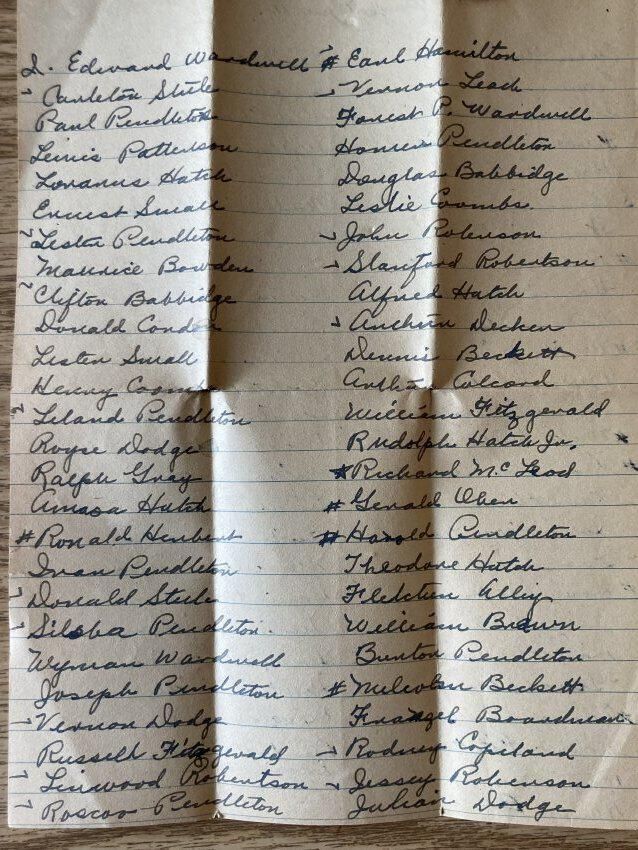 I. Edward Wardwell
✓ Carleton Steele
Paul Pendleton
Lewis Patterson
Loranus Hatch
Ernest Small
✓ Lester Pendleton
Maurice Bowden
✓ Clifton Babbidge
Donald Condon
Lester Small
Henry Coombs
✓ Leland Pendleton
Royse Dodge
Ralph Gray
Amasa Hatch
# Ronald Herbert
Ivan Pendleton
✓ Donald Steele
✓ Silsba Pendleton
Wyman Wardwell
Joseph Pendleton
✓ Vernon Dodge
Russell Fitzgerald
✓ Linwood Robertson
✓ Roscoe Pendleton
# Earl Hamilton
✓ Vernon Leach
Forrest P. Wardwell
Homer Pendleton
Douglas Babbidge
Leslie Coombs
✓ John Robinson
✓ Stanford Robertson
Alfred Hatch
✓ Decker
Dennis Beckett
Arthur Colcord
William Fitzgerald
Rudolph Hatch Jr.
# Richard McLeod
# Gerald Ober
# Harold Pendleton
Theodore Hatch
Fletcher Alley
William Brown
Burton Pendleton
# Malcolm Beckett
Boardman
✓ Rodney Copeland
✓ Jessey Robenson
Julian Dodge